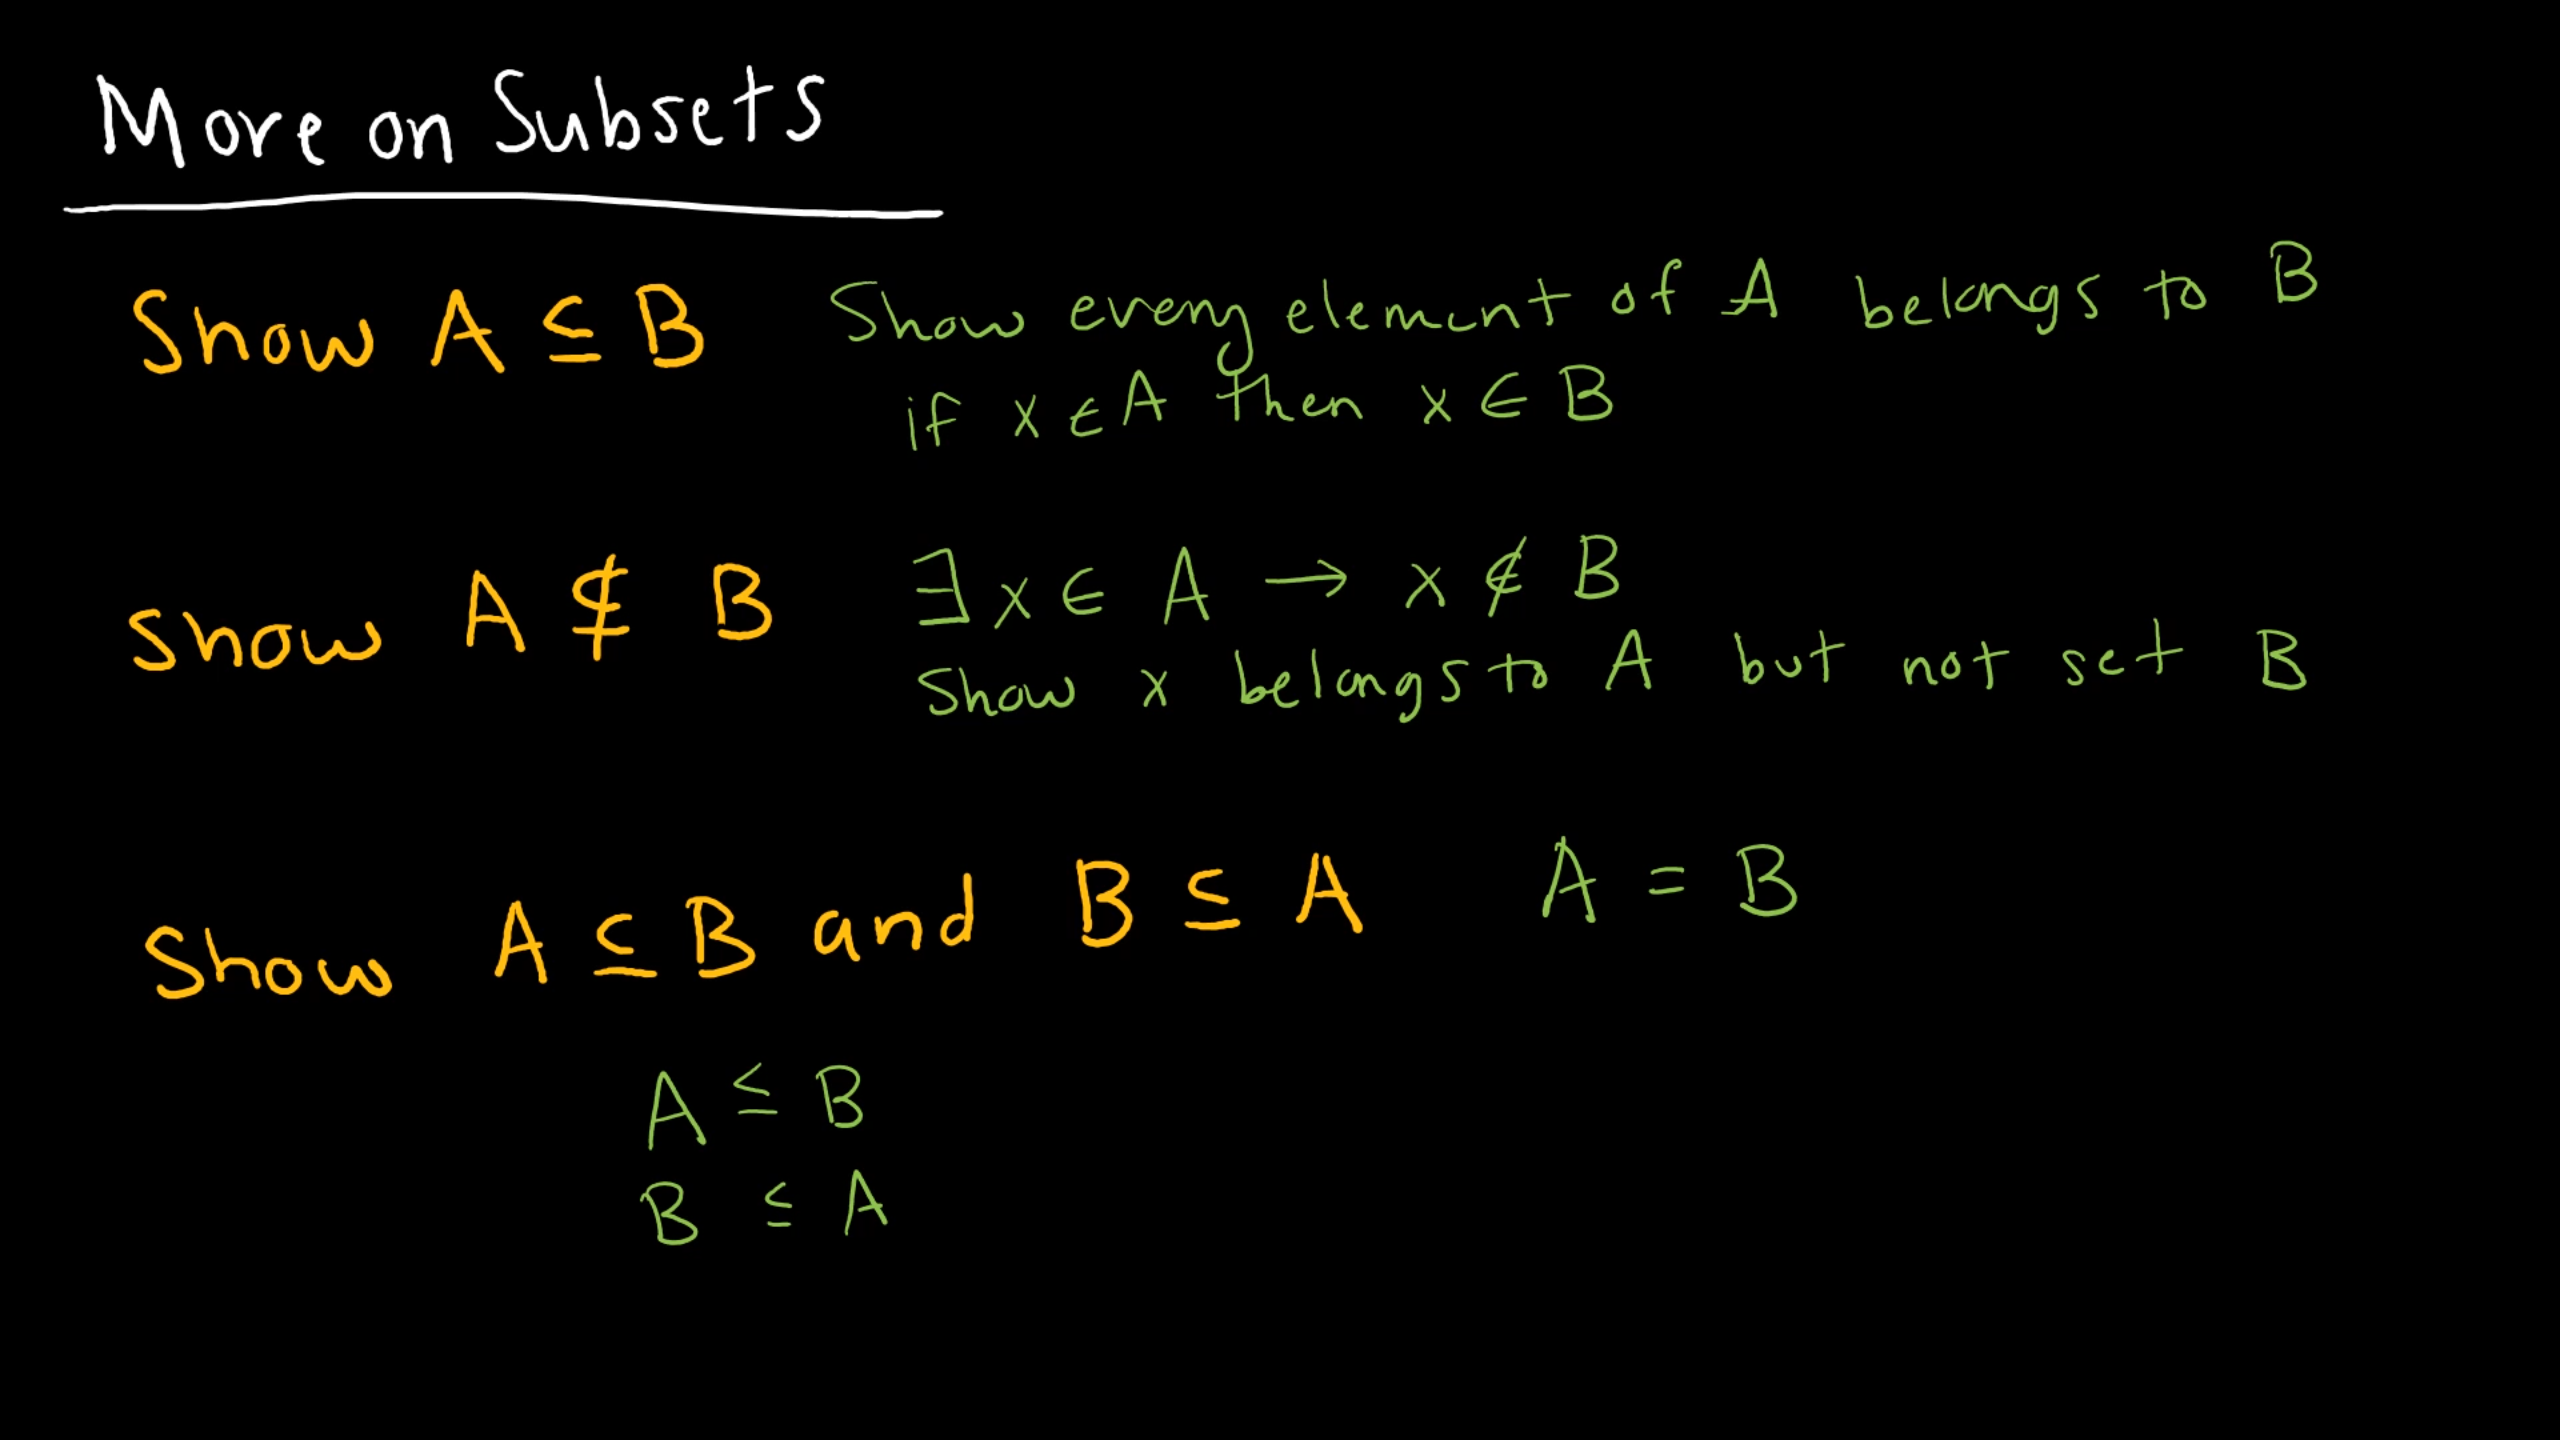 More on Subsets
Show A ⊆ B
Show every element of A belongs to B
if x ∈ A then x ∈ B
Show A ⊈ B
∃ x ∈ A → x ∉ B
Show x belongs to A but not set B
Show A ⊆ B and B ⊆ A
A = B
A ⊆ B
B ⊆ A